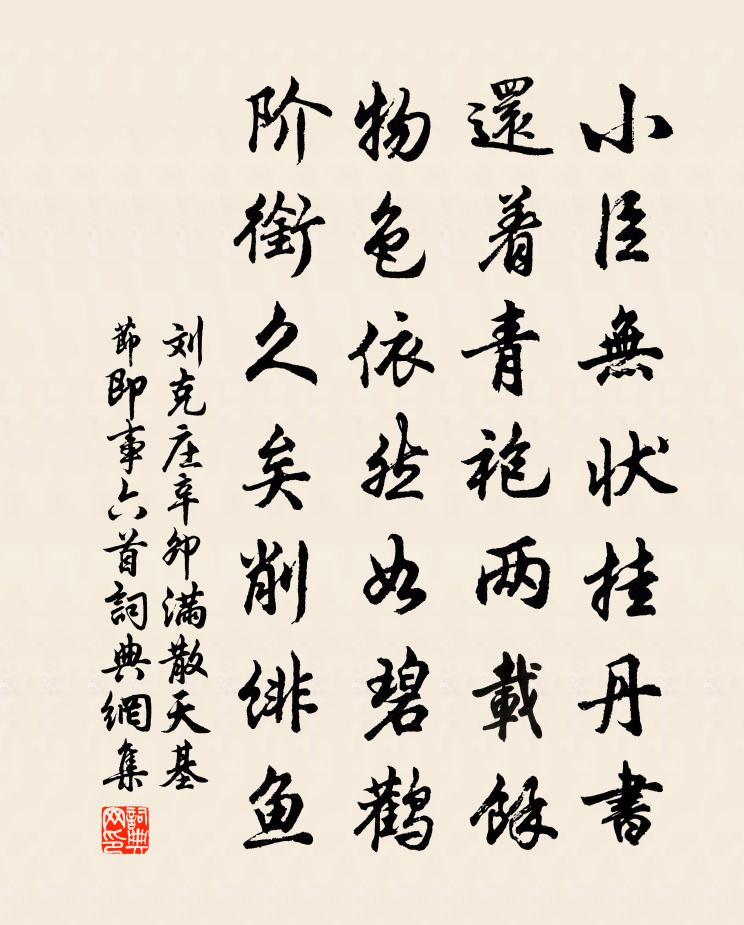 小臣無状挂丹書
還着青袍两載餘
物色依然如碧鹳
阶銜久矣削绯鱼
刘克庄辛卯满散天基
節即事六首詞典網集
詞典
网印